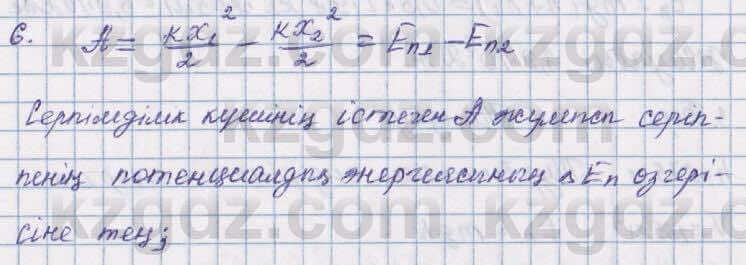 6. A = kx₁²/2 - kx₂²/2 = Eп1 - Eп2
Серпімділік күшінің істеген A жұмысы серіп-
пенің потенциалдық энергиясының ΔEп өзгері-
сіне тең;